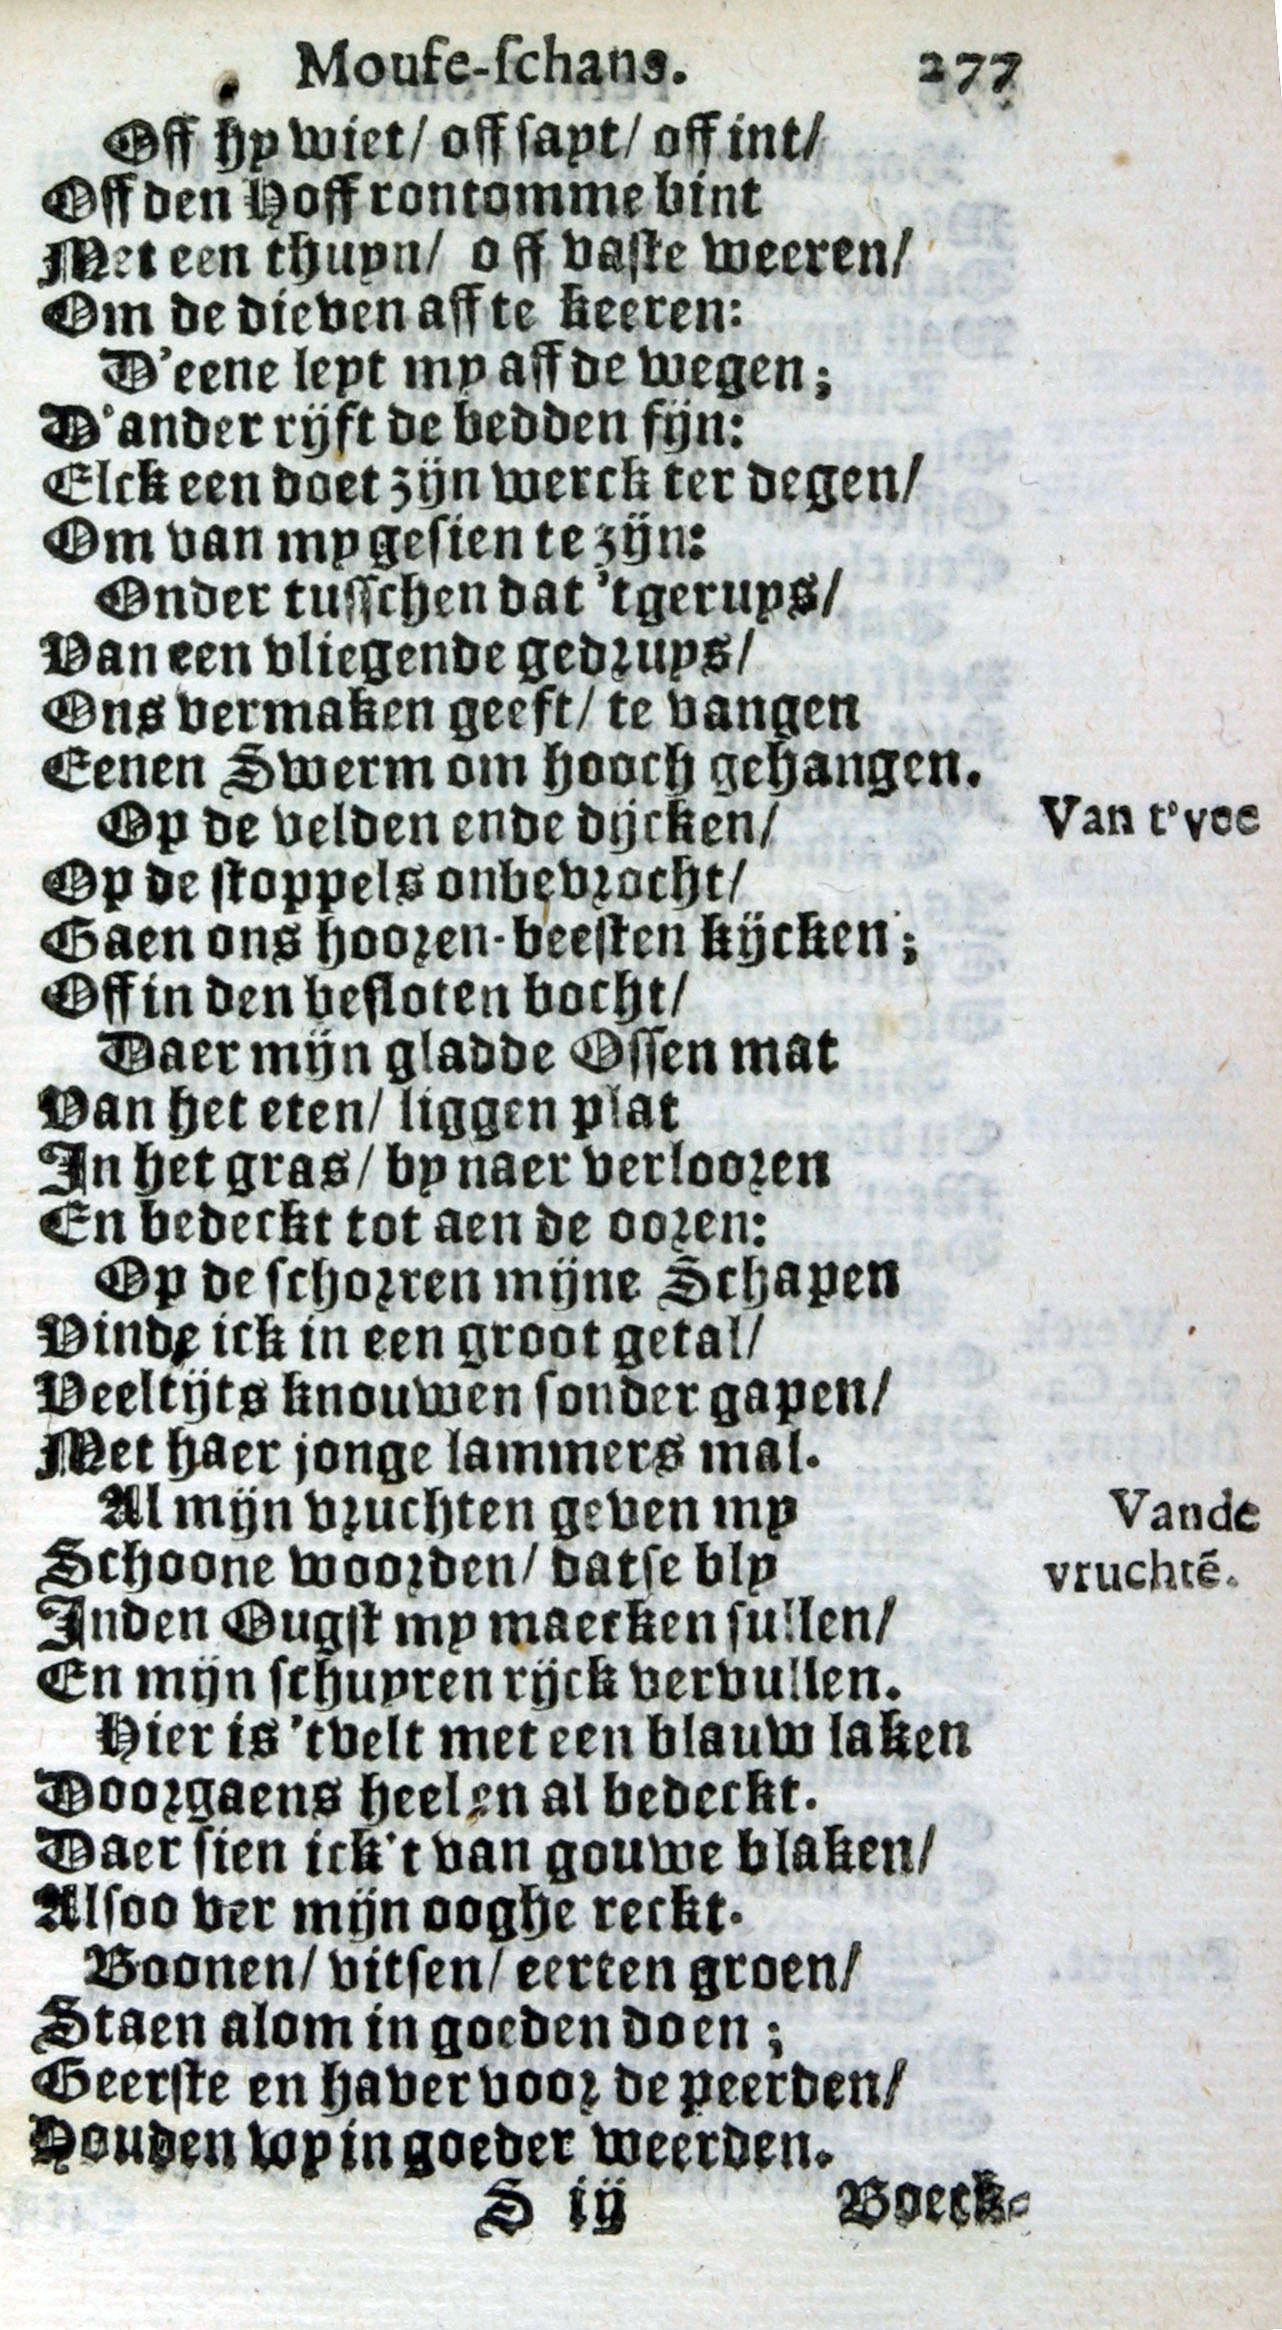 Moufe-ſchans. 277
Off hy wiet/ off sayt/ off int/
Off den Hoff rontomme bint
Met een thuyn/ off vaste weeren/
Om de dieven aff te keeren:
D'eene leyt my aff de wegen;
D'ander rijft de bedden fijn:
Elck een doet zijn werck ter degen/
Om van my gesien te zijn:
Onder tusschen dat 'tgeruys/
Van een vliegende gedruys/
Ons vermaken geeft/ te vangen
Eenen Swerm om hooch gehangen.
Op de velden ende dijcken/
Van t'vee
Op de stoppels onbevrocht/
Gaen ons hooren-beesten kijcken;
Off in den besloten bocht/
Daer mijn gladde Ossen mat
Van het eten/ liggen plat
In het gras/ by naer verlooren
En bedeckt tot aen de ooren:
Op de schorren mijne Schapen
Vinde ick in een groot getal/
Veeltijts knouwen sonder gapen/
Met haer jonge lammers mal.
Al mijn vruchten geven my
Vande
Schoone woorden/ datse bly
vruchtē.
Inden Ougst my maecken sullen/
En mijn schuyren rijck vervullen.
Hier is 'tvelt met een blauw laken
Doorgaens heel en al bedeckt.
Daer sien ick't van gouwe blaken/
Alsoo ver mijn ooghe reckt.
Boonen/ vitsen/ eerten groen/
Staen alom in goeden doen;
Geerste en haver voor de peerden/
Houden wy in goeder weerden.
S ij Boeck-